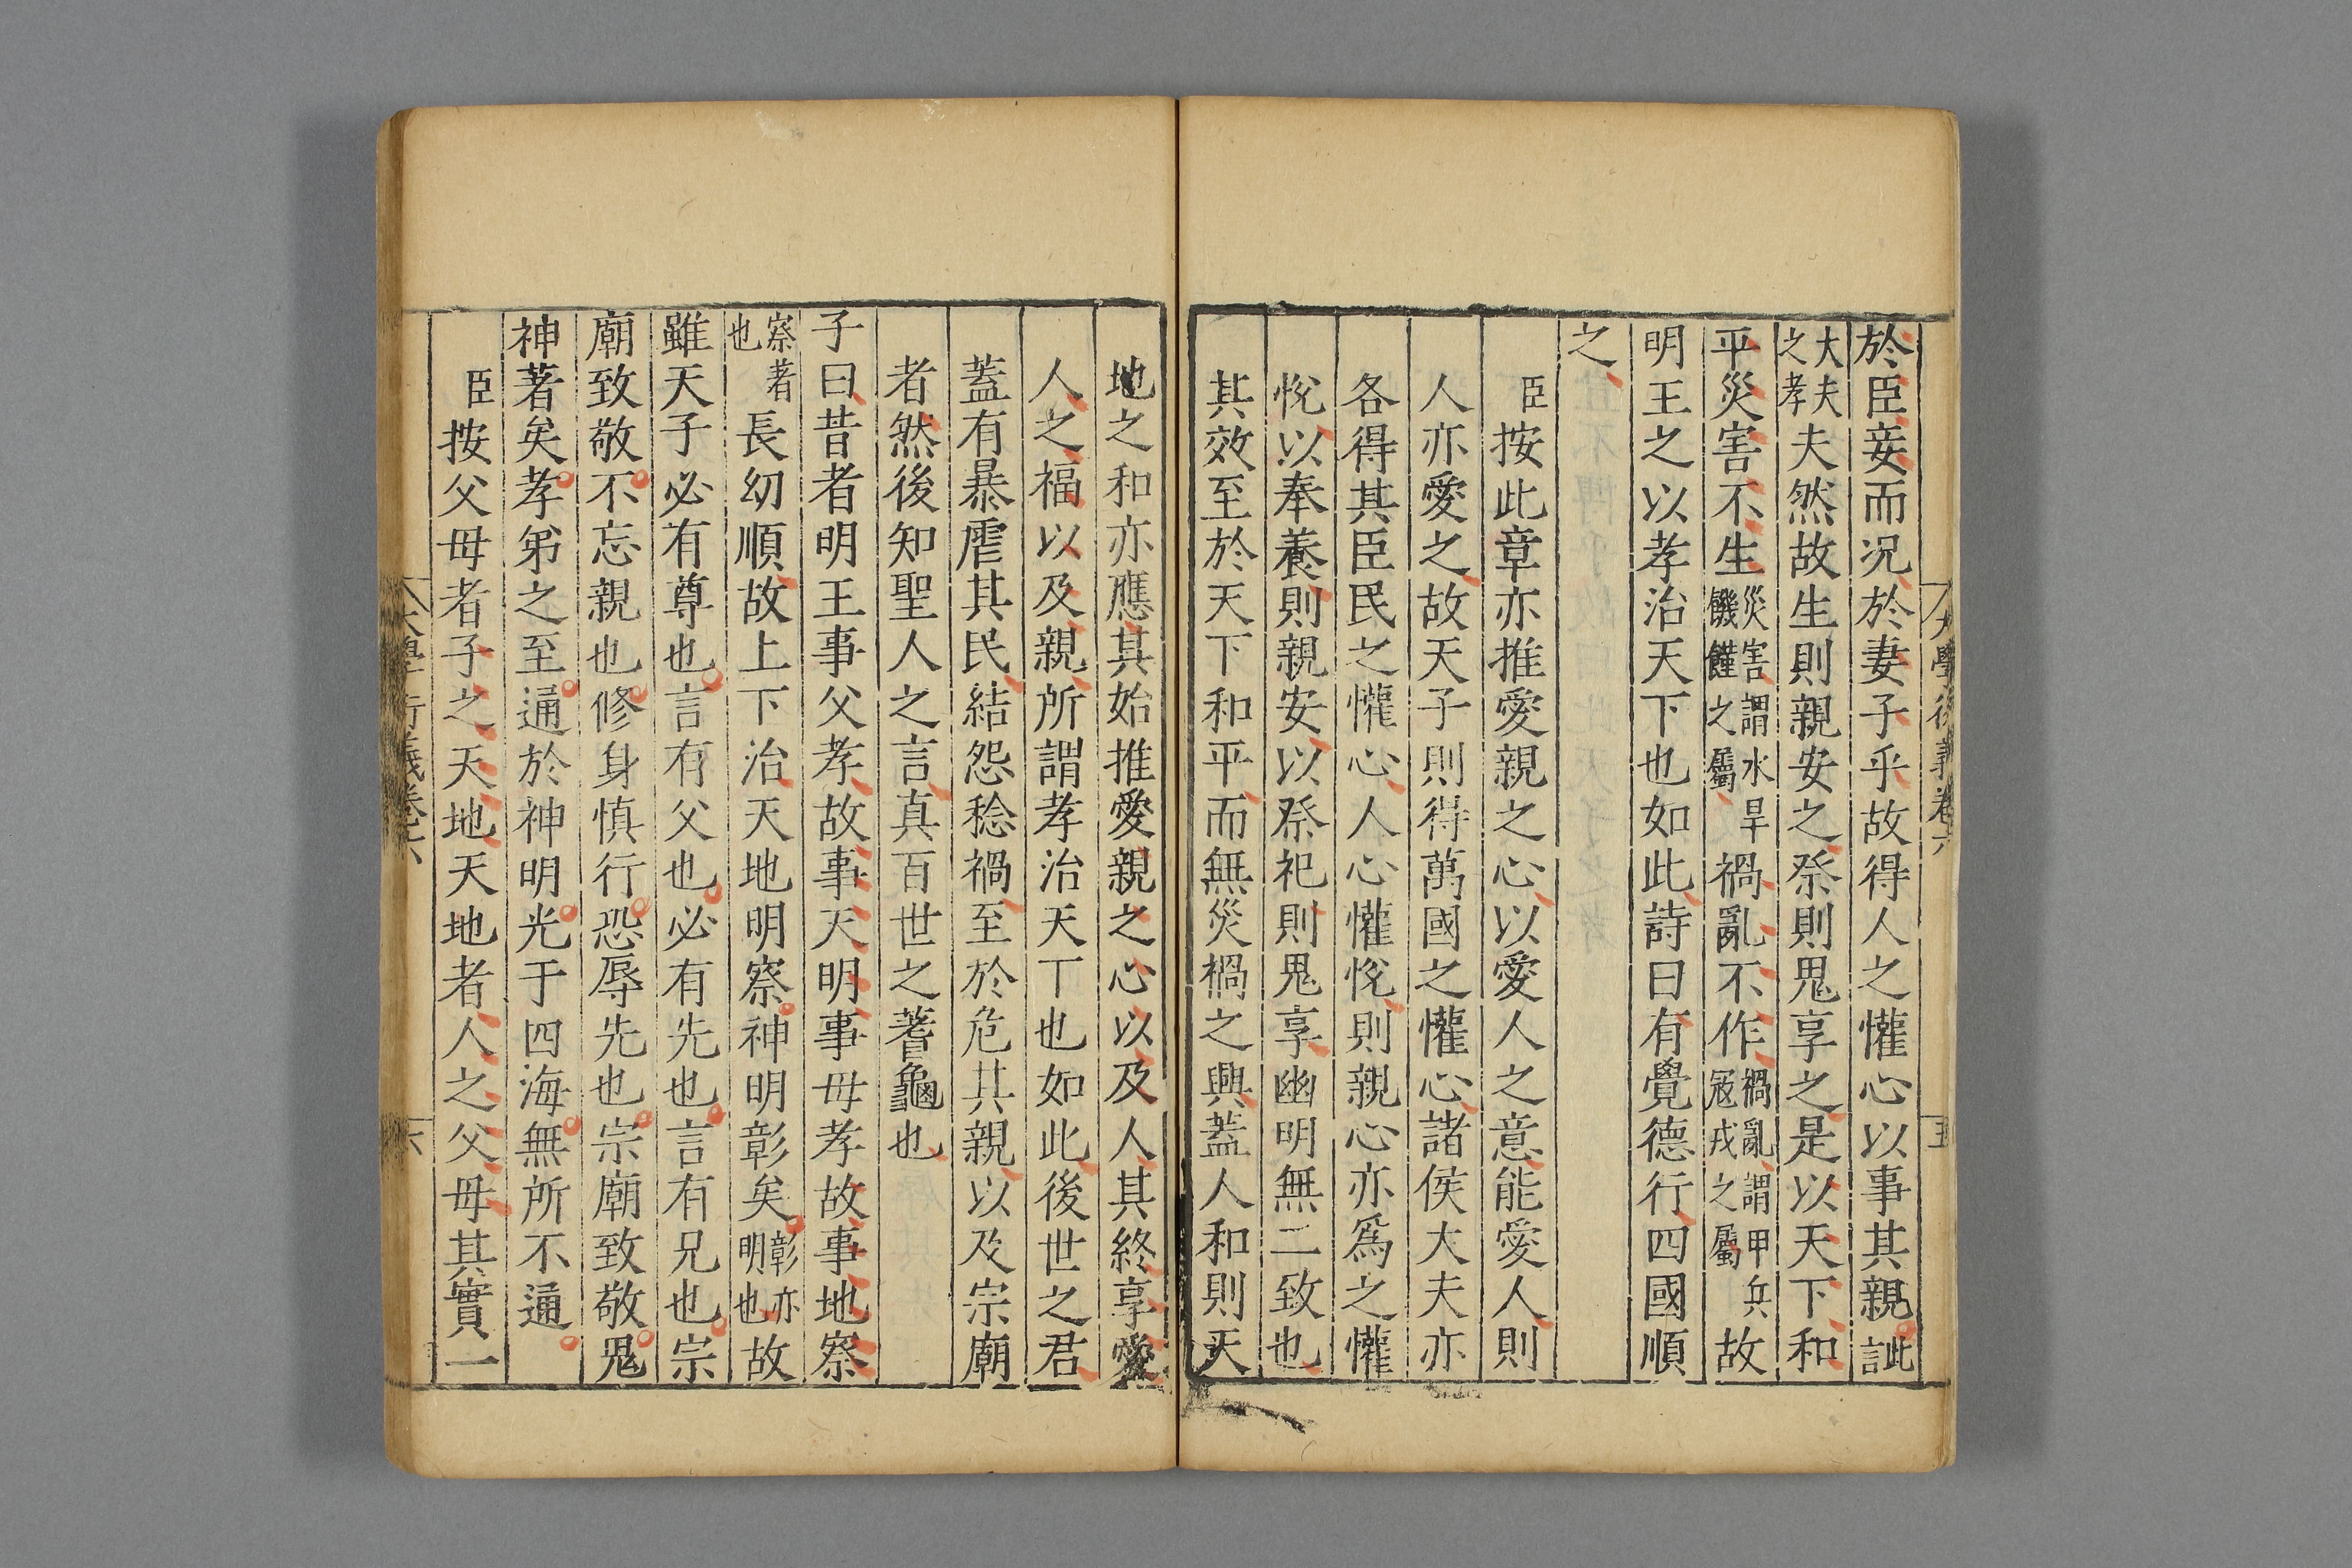 大學衍義卷六
五
於臣妾而况於妻子乎故得人之懽心以事其親此言
大夫之孝夫然故生則親安之祭則鬼享之是以天下和
平災害不生災害謂水旱饑饉之屬禍亂不作禍亂謂甲兵寇戎之屬故
明王之以孝治天下也如此詩曰有覺德行四國順
之
臣按此章亦推愛親之心以愛人之意能愛人則
人亦愛之故天子則得萬國之懽心諸侯大夫亦
各得其臣民之懽心人心懽悅則親心亦爲之懽
悅以奉養則親安以祭祀則鬼享幽明無二致也
其效至於天下和平而無災禍之興蓋人和則天
地之和亦應其始推愛親之心以及人其終享愛
人之福以及親所謂孝治天下也如此後世之君
蓋有暴虐其民結怨稔禍至於危其親以及宗廟
者然後知聖人之言真百世之蓍龜也
子曰昔者明王事父孝故事天明事母孝故事地察
察著也長幼順故上下治天地明察神明彰矣彰亦明也故
雖天子必有尊也言有父也必有先也言有兄也宗
廟致敬不忘親也修身慎行恐辱先也宗廟致敬鬼
神著矣孝弟之至通於神明光于四海無所不通
臣按父母者子之天地天地者人之父母其實一
大學衍義卷六
六